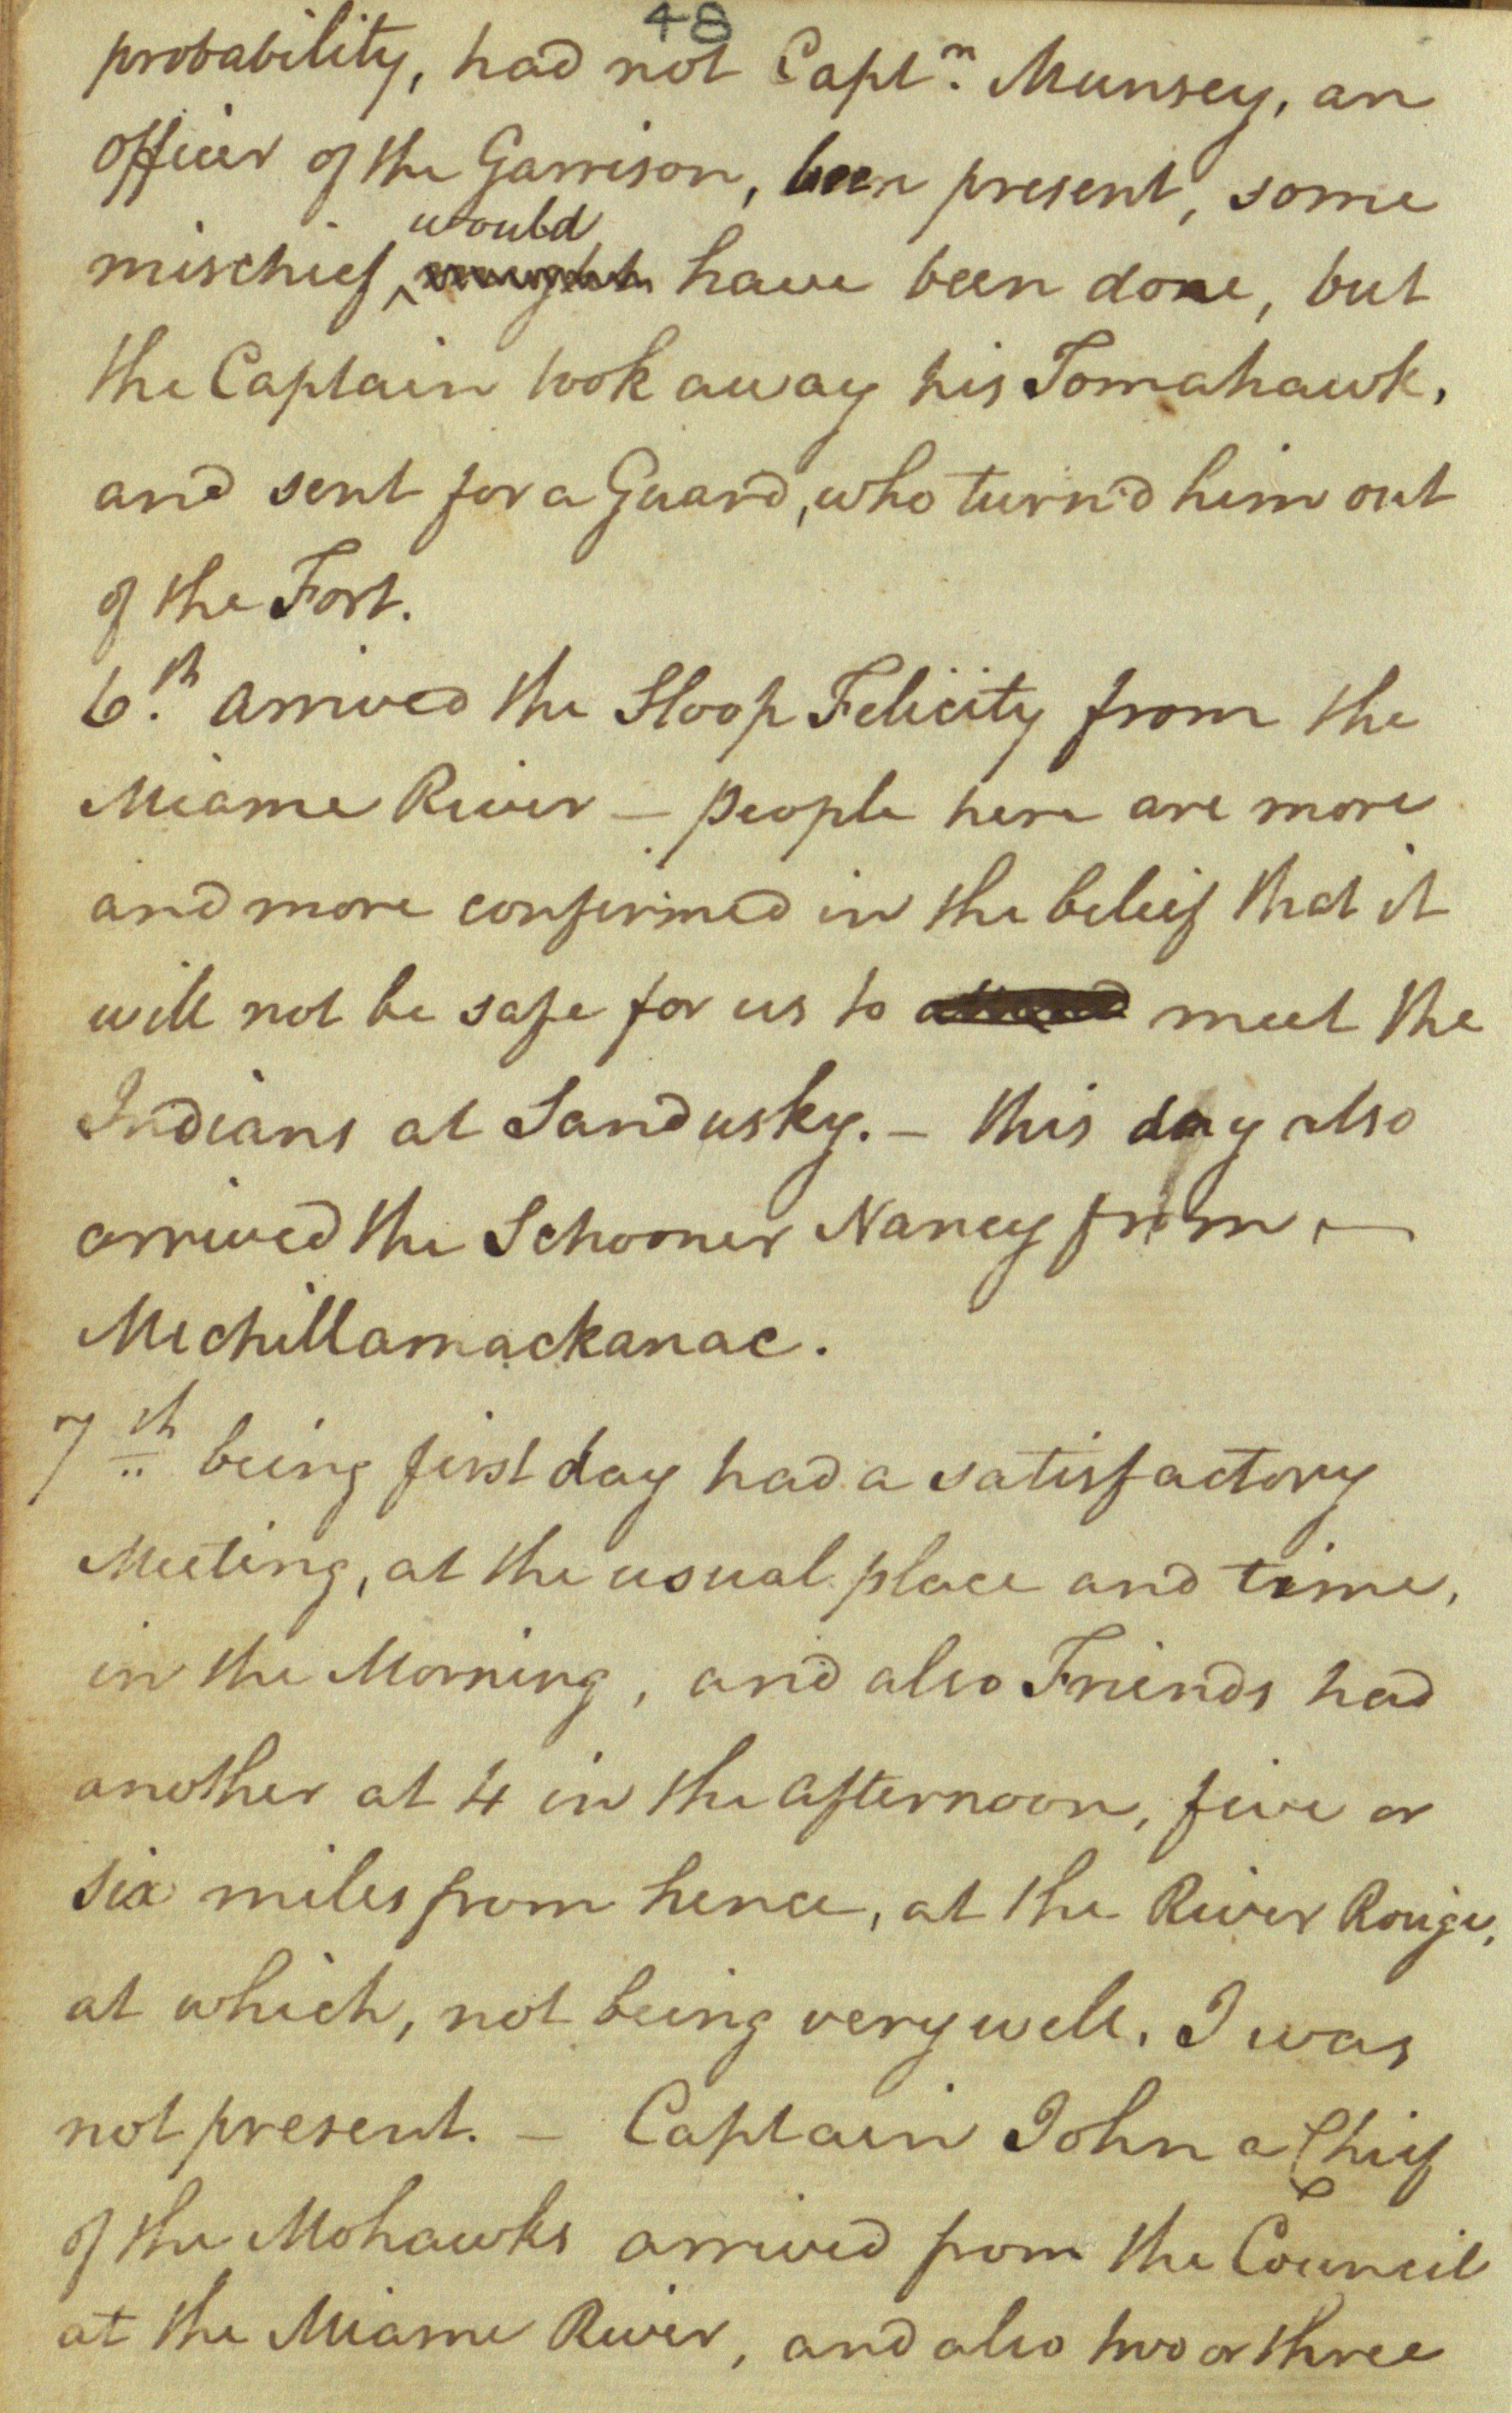 48
probability, had not Capt.n Munsey, an
officer of the Garrison, been present, some
would
mischief ^ have been done, but
the Captain took away his Tomahawk,
and sent for a Guard, who turn'd him out
of the Fort.
6.th arrived the Sloop Felicity from the
Miame River – people here are more
and more confirmed in the beleif that it
will not be safe for us to meet the
Indians at Sandusky. – this day also
arrived the Schooner Nancy from –
Michillamackanac.
7th being first day had a satisfactory
Meeting, at the usual place and time,
in the Morning, and also Friends had
another at 4 in the afternoon, five or
six miles from hence, at the River Rouge,
at which, not being very well, I was
not present. – Captain John a Chief
of the Mohawks arrived from the Council
at the Miame River, and also two or three